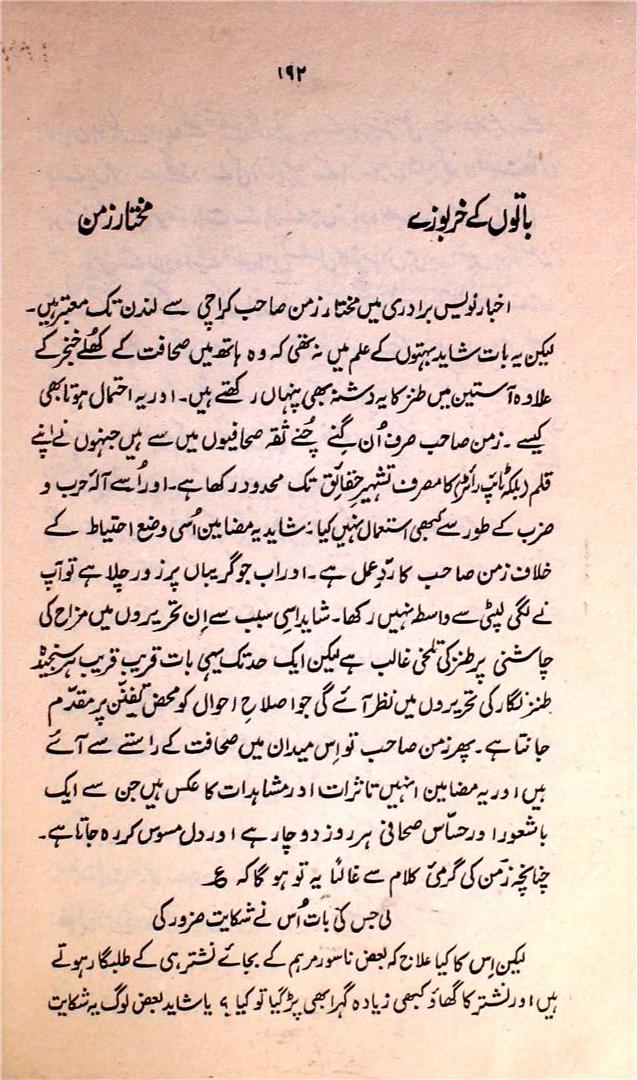 ۱۹۲
باتوں کے خربوزے مختار زمن
اخبار نویس برادری میں مختار زمن صاحب کراچی سے لندن تک معتبر ہیں۔
لیکن یہ بات شاید بہتوں کے علم میں نہ تھی کہ وہ ہاتھ میں صحافت کے کُھلے خنجر کے
علاوہ آستین میں طنز کا یہ دشنہ بھی پنہاں رکھتے ہیں۔ اور یہ احتمال ہوتا بھی
کیسے۔ زمن صاحب صرف اُن گِنے چُنے ثقہ صحافیوں میں سے ہیں جنہوں نے اپنے
قلم (بلکہ ٹائپ رائٹر) کا مصرف تشہیرِ حقائق تک محدود رکھا ہے۔ اور اُسے آلۂ حرب و
ضرب کے طور سے کبھی استعمال نہیں کیا: شاید یہ مضامین اُسی وضع احتیاط کے
خلاف زمن صاحب کا ردِّ عمل ہے۔ اور اب جو گریباں پر زور چلا ہے تو آپ
نے لگی لپٹی سے واسطہ نہیں رکھا۔ شاید اِسی سبب سے اِن تحریروں میں مزاح کی
چاشنی پر طنز کی تلخی غالب ہے لیکن ایک حد تک یہی بات قریب قریب ہر سنجیدہ
طنز نگار کی تحریروں میں نظر آئے گی جو اصلاحِ احوال کو محض تفنّن پر مقدّم
جانتا ہے۔ پھر زمن صاحب تو اِس میدان میں صحافت کے راستے سے آئے
ہیں اور یہ مضامین انہیں تاثرات اور مشاہدات کا عکس ہیں جن سے ایک
باشعور اور حسّاس صحافی ہر روز دوچار ہے اور دل مسوس کر رہ جاتا ہے۔
چنانچہ زمن کی گرمیٔ کلام سے غالباً یہ تو ہو گا کہ ؏
لی جس کی بات اُس نے شکایت ضرور کی
لیکن اِس کا کیا علاج کہ بعض ناسور مرہم کے بجائے نشتر ہی کے طلبگار ہوتے
ہیں اور نشتر کا گھاؤ کبھی زیادہ گہرا بھی پڑ گیا تو کیا؟ یا شاید بعض لوگ یہ شکایت